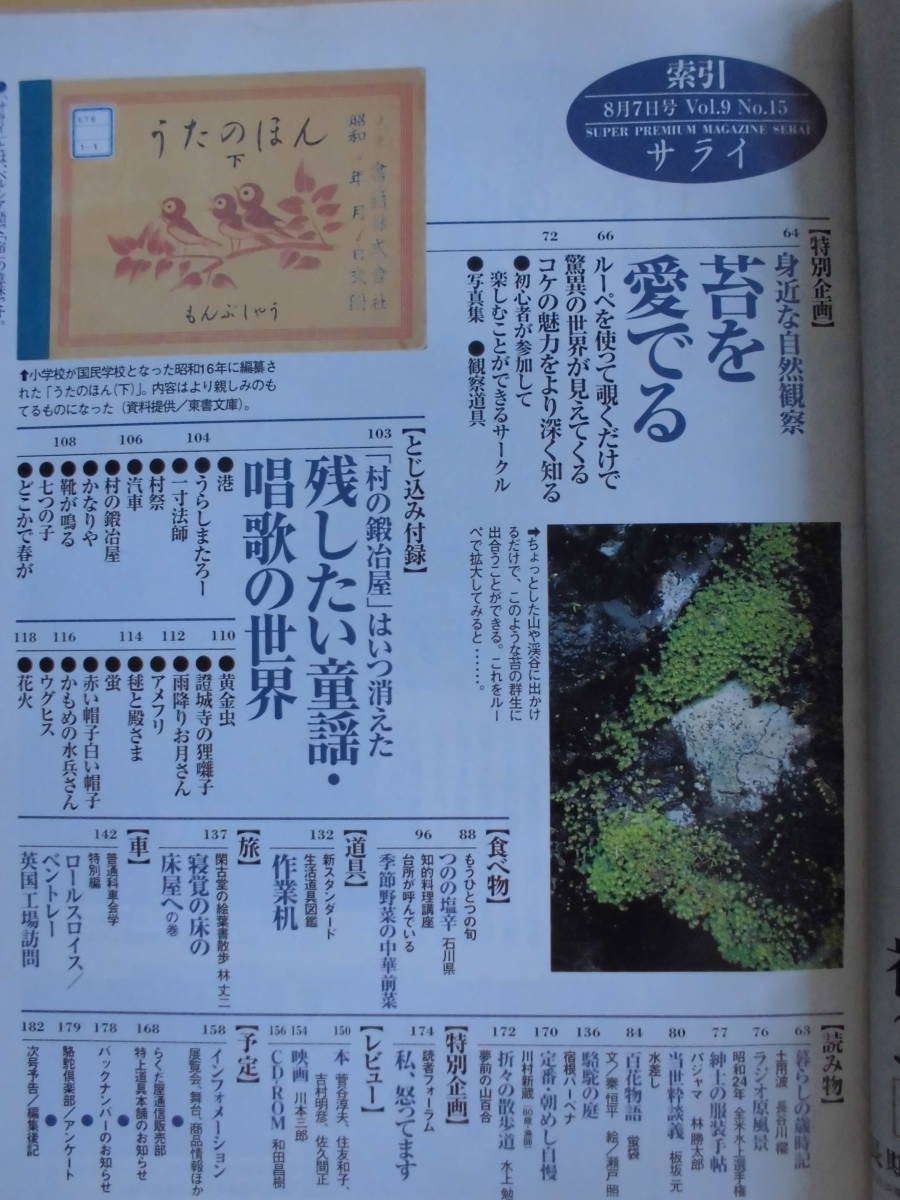 索引
8月7日号 Vol.9 No.15
SUPER PREMIUM MAGAZINE SERAI
サライ
うたのほん
下
もんぶしゃう
⬆小学校が国民学校となった昭和16年に編纂さ
れた「うたのほん(下)』。内容はより親しみのも
てるものになった(資料提供/東書文庫)。
【特別企画】
64
身近な自然観察
苔を
愛でる
66
ルーペを使って覗くだけで
驚異の世界が見えてくる
72
コケの魅力をより深く知る
●初心者が参加して
楽しむことができるサークル
●写真集 ●観察道具
➡ちょっとした山や渓谷に出かけ
るだけで、このような苔の群生に
出合うことができる。これをルー
ペで拡大してみると……。
【とじ込み付録】
103
「村の鍛冶屋」はいつ消えた
残したい童謡・
唱歌の世界
●港
104
●うらしまたろー
●一寸法師
●村祭
106
●汽車
●村の鍛冶屋
●かなりや
108
●靴が鳴る
●七つの子
●どこかで春が
110
●黄金虫
●證城寺の狸囃子
112
●雨降りお月さん
●アメフリ
114
●毬と殿さま
●蛍
●赤い帽子白い帽子
116
●かもめの水兵さん
●ウグヒス
118
●花火
【食べ物】
88
もうひとつの旬
つのの塩辛 石川県
96
知的料理講座
台所が呼んでいる
季節野菜の中華前菜
【道具】
132
新スタンダード
生活道具図鑑
作業机
【旅】
137
閑古堂の絵葉書散歩 林丈二
寝覚の床の
床屋への巻
【車】
142
普通科車会学
特別編
ロールスロイス/
ベントレー
英国工場訪問
【読み物】
63
暮らしの歳時記
土用波 長谷川櫂
76
ラジオ原風景
昭和24年 全米水上選手権
77
紳士の服装手帖
パジャマ 林勝太郎
80
当世粋談義 板坂元
水差し
84
百花物語 蛍袋
文/秦恒平 絵/瀬戸照
136
駱駝の庭
宿根バーベナ
170
定番・朝めし自慢
川村新蔵
172
折々の散歩道 水上勉
夢前の山百合
【特別企画】
174
読者フォーラム
私、怒ってます
【レビュー】
150
本 菅谷淳夫、住友和子、
吉村明彦、佐久間正
154
映画 川本三郎
156
CD-ROM 和田昌樹
【予定】
158
インフォメーション
展覧会、舞台、商品情報ほか
●
168
らくだ屋通信販売部
特上道具本舗のお知らせ
●
178
バックナンバーのお知らせ
●
179
駱駝倶楽部/アンケート
●
182
次号予告/編集後記